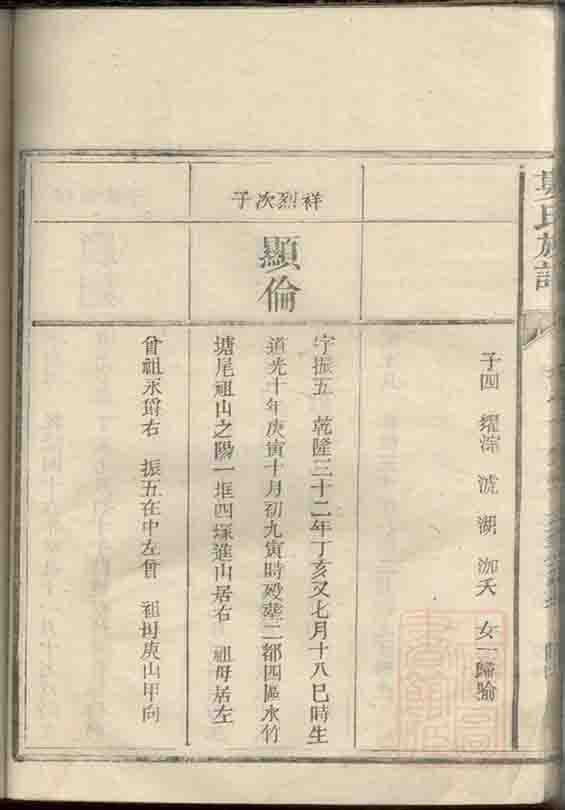 吴氏族譜
子四 耀淙 淲 湖 泇夭 女一歸駼
祥烈次子
顯倫
字振五 乾隆三十二年丁亥又七月十八巳時生
道光十年庚寅十月初九寅時殁塟二都四區水竹
塘尾祖山之陽一堆四塚進山居右 祖母居左
曾祖永爵右 振五在中左曾 祖母庚山甲向